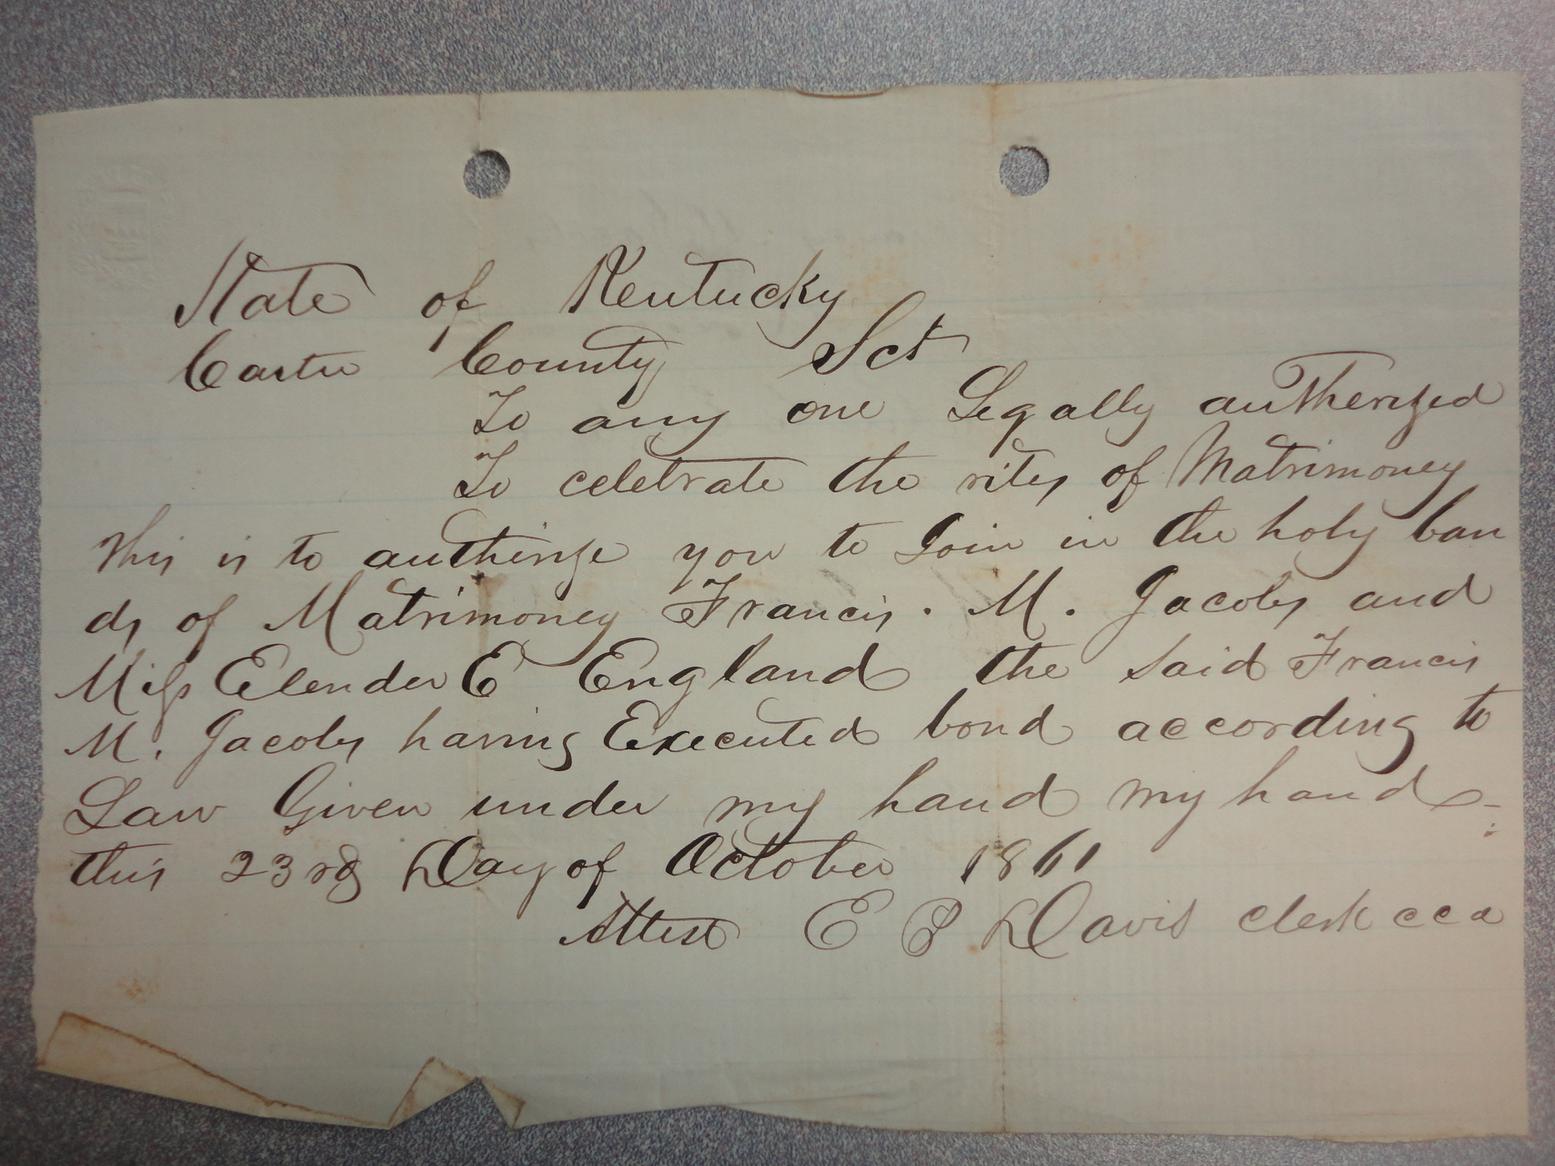 State of Kentucky
Carter County Sct
To any one Legally autherized
To celebrate the rites of Matrimoney
This is to autherize you to Join in the holy ban
ds of Matrimoney Francis. M. Jacobs and
Miss Elender E England the said Francis
M. Jacobs having Executed bond according to
Law Given under my hand my hand
this 23rd Day of October 1861
Attest E P Davis clerk ccc